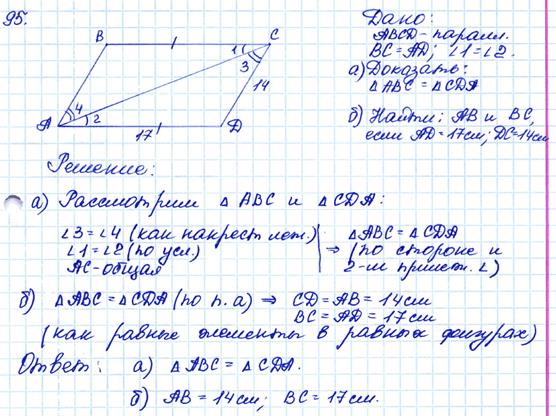 95.
B
C
1
3
14
A
4
2
17
D
Дано:
ABCD - паралл.
BC = AD; ∠1 = ∠2.
а) Доказать:
△ABC = △CDA
б) Найти: AB и BC,
если AD = 17см; DC = 14см
Решение:
а) Рассмотрим △ ABC и △ CDA:
∠3 = ∠4 (как накрест леж.)
∠1 = ∠2 (по усл.)
AC - общая
⇒ △ABC = △CDA
(по стороне и
2-м прилеж. ∠)
б) △ABC = △CDA (по п. а) ⇒ CD = AB = 14см
BC = AD = 17см
(как равные элементы в равных фигурах)
Ответ: а) △ABC = △CDA.
б) AB = 14см; BC = 17см.